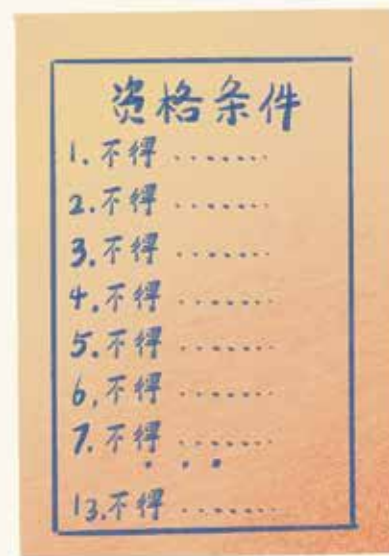 资格条件
1.不得.......
2.不得.......
3.不得.......
4.不得.......
5.不得.......
6.不得.......
7.不得.......
...
13.不得.......